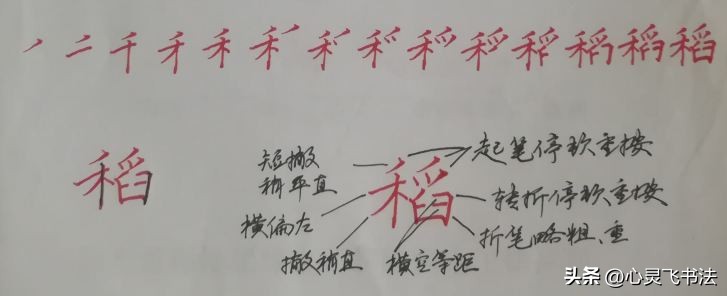 丿 二 千 禾 稻
稻
短撇
稍平直
横偏左
撇稍直
稻
横空等距
起笔停顿重按
转折停顿重按
折笔略粗、重
头条 @心灵飞书法